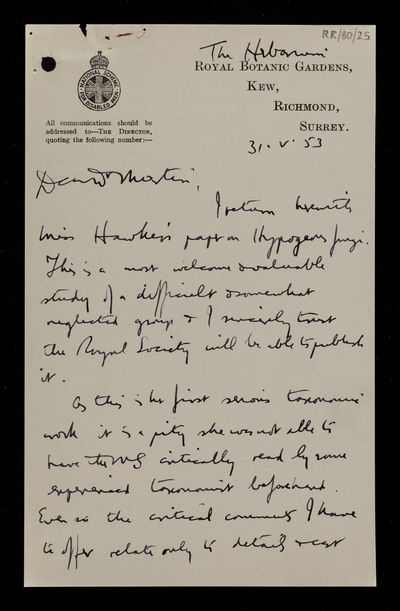 RR/80/25
The Herbarium
ROYAL BOTANIC GARDENS,
KEW,
RICHMOND,
SURREY.
NATIONAL SCHEME FOR DISABLED MEN
All communications should be
addressed to—THE DIRECTOR,
quoting the following number:—
31. V. 53
Dear Dr Martin,
I return herewith
Miss Hawker's paper on Hypogeous fungi.
This is a most welcome & valuable
study of a difficult & somewhat
neglected group & I sincerely trust
the Royal Society will be able to publish
it.
As this is her first serious taxonomic
work it is a pity she was not able to
have the MS critically read by some
experienced taxonomist beforehand.
Even so the critical comments I have
to offer relate only to details & cast